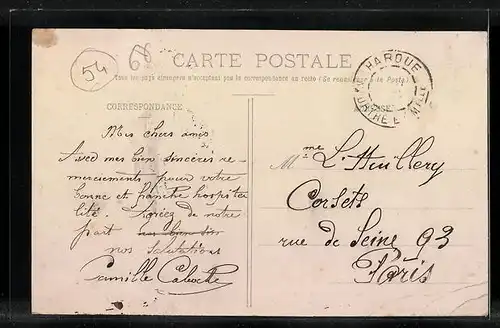 54
68
CARTE POSTALE
Tous les pays étrangers n'acceptent pas la correspondance au recto (Se renseigner à la Poste)
HAROUÉ
MEURTHE ET MLLE
CORRESPONDANCE
Mes chers amis
Avec mes bien sincères re-
merciements pour votre
bonne et franche hospita
lité. de notre
part
nos salutations
Camille
Mme L'Huillery
Corsets
rue de Seine 93
Paris